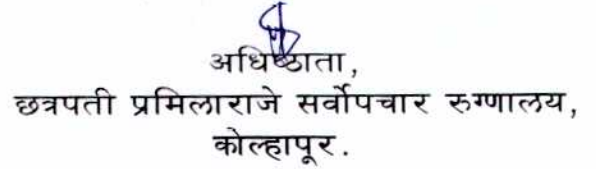 अधिष्ठाता,
छत्रपती प्रमिलाराजे सर्वोपचार रुग्णालय,
कोल्हापूर.